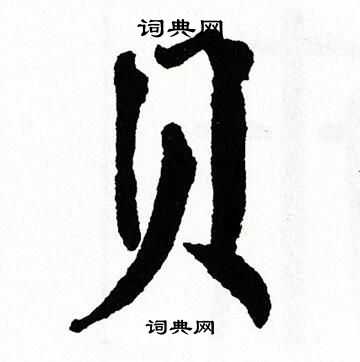 词典网
贝
词典网